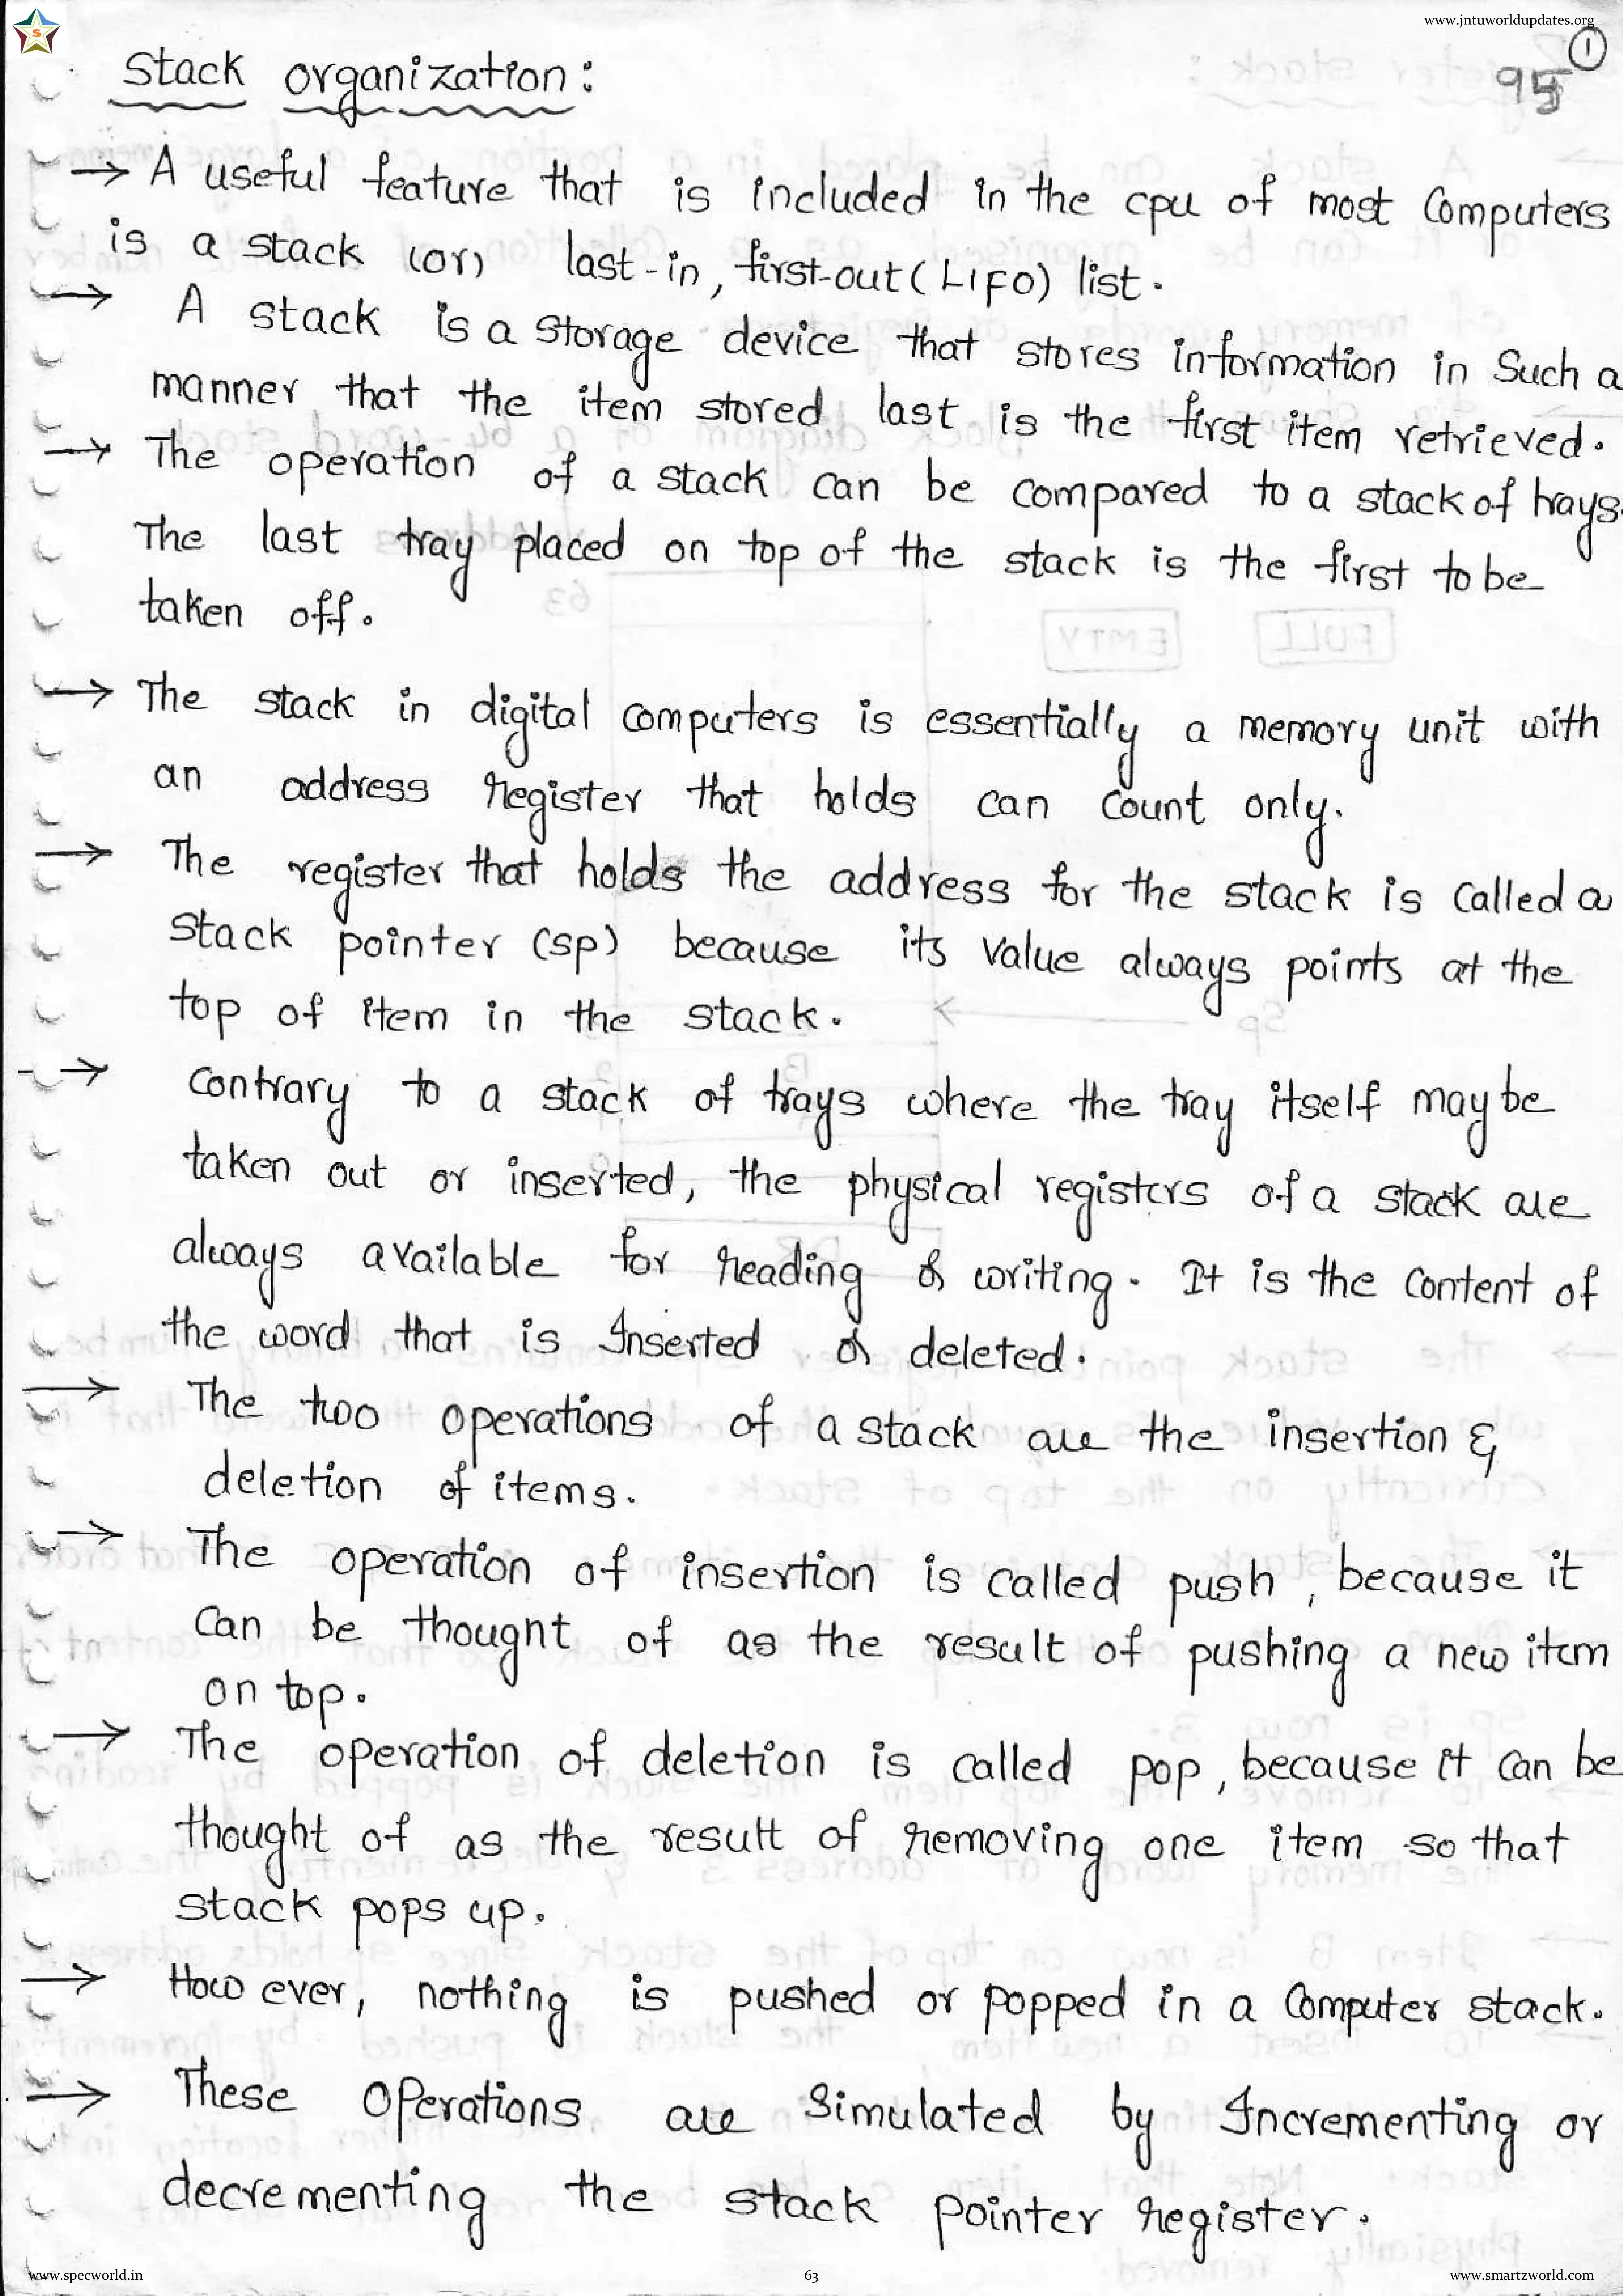 www.jntuworldupdates.org
S
1
95
Stack organization:
→ A useful feature that is included in the cpu of most Computers
is a stack (or) last-in, first-out (LIFO) list.
→ A stack is a storage device that stores information in Such a
manner that the item stored last is the first item retrieved.
→ The operation of a stack can be compared to a stack of trays.
The last tray placed on top of the stack is the first to be
taken off.
→ The stack in digital computers is essentially a memory unit with
an address register that holds can count only.
→ The register that holds the address for the stack is called a
stack pointer (SP) because its value always points at the
top of item in the stack.
→ Contrary to a stack of trays where the tray itself may be
taken out or inserted, the physical registers of a stack are
always available for reading or writing. It is the content of
the word that is Inserted or deleted.
→ The two operations of a stack are the insertion &
deletion of items.
→ The operation of insertion is called push, because it
can be thought of as the result of pushing a new item
on top.
→ The operation of deletion is called pop, because it can be
thought of as the result of removing one item so that
stack pops up.
→ However, nothing is pushed or popped in a computer stack.
→ These operations are simulated by Incrementing or
decrementing the stack pointer register.
www.specworld.in
63
www.smartzworld.com